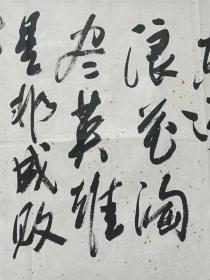 浪花淘
尽英雄
是非成败